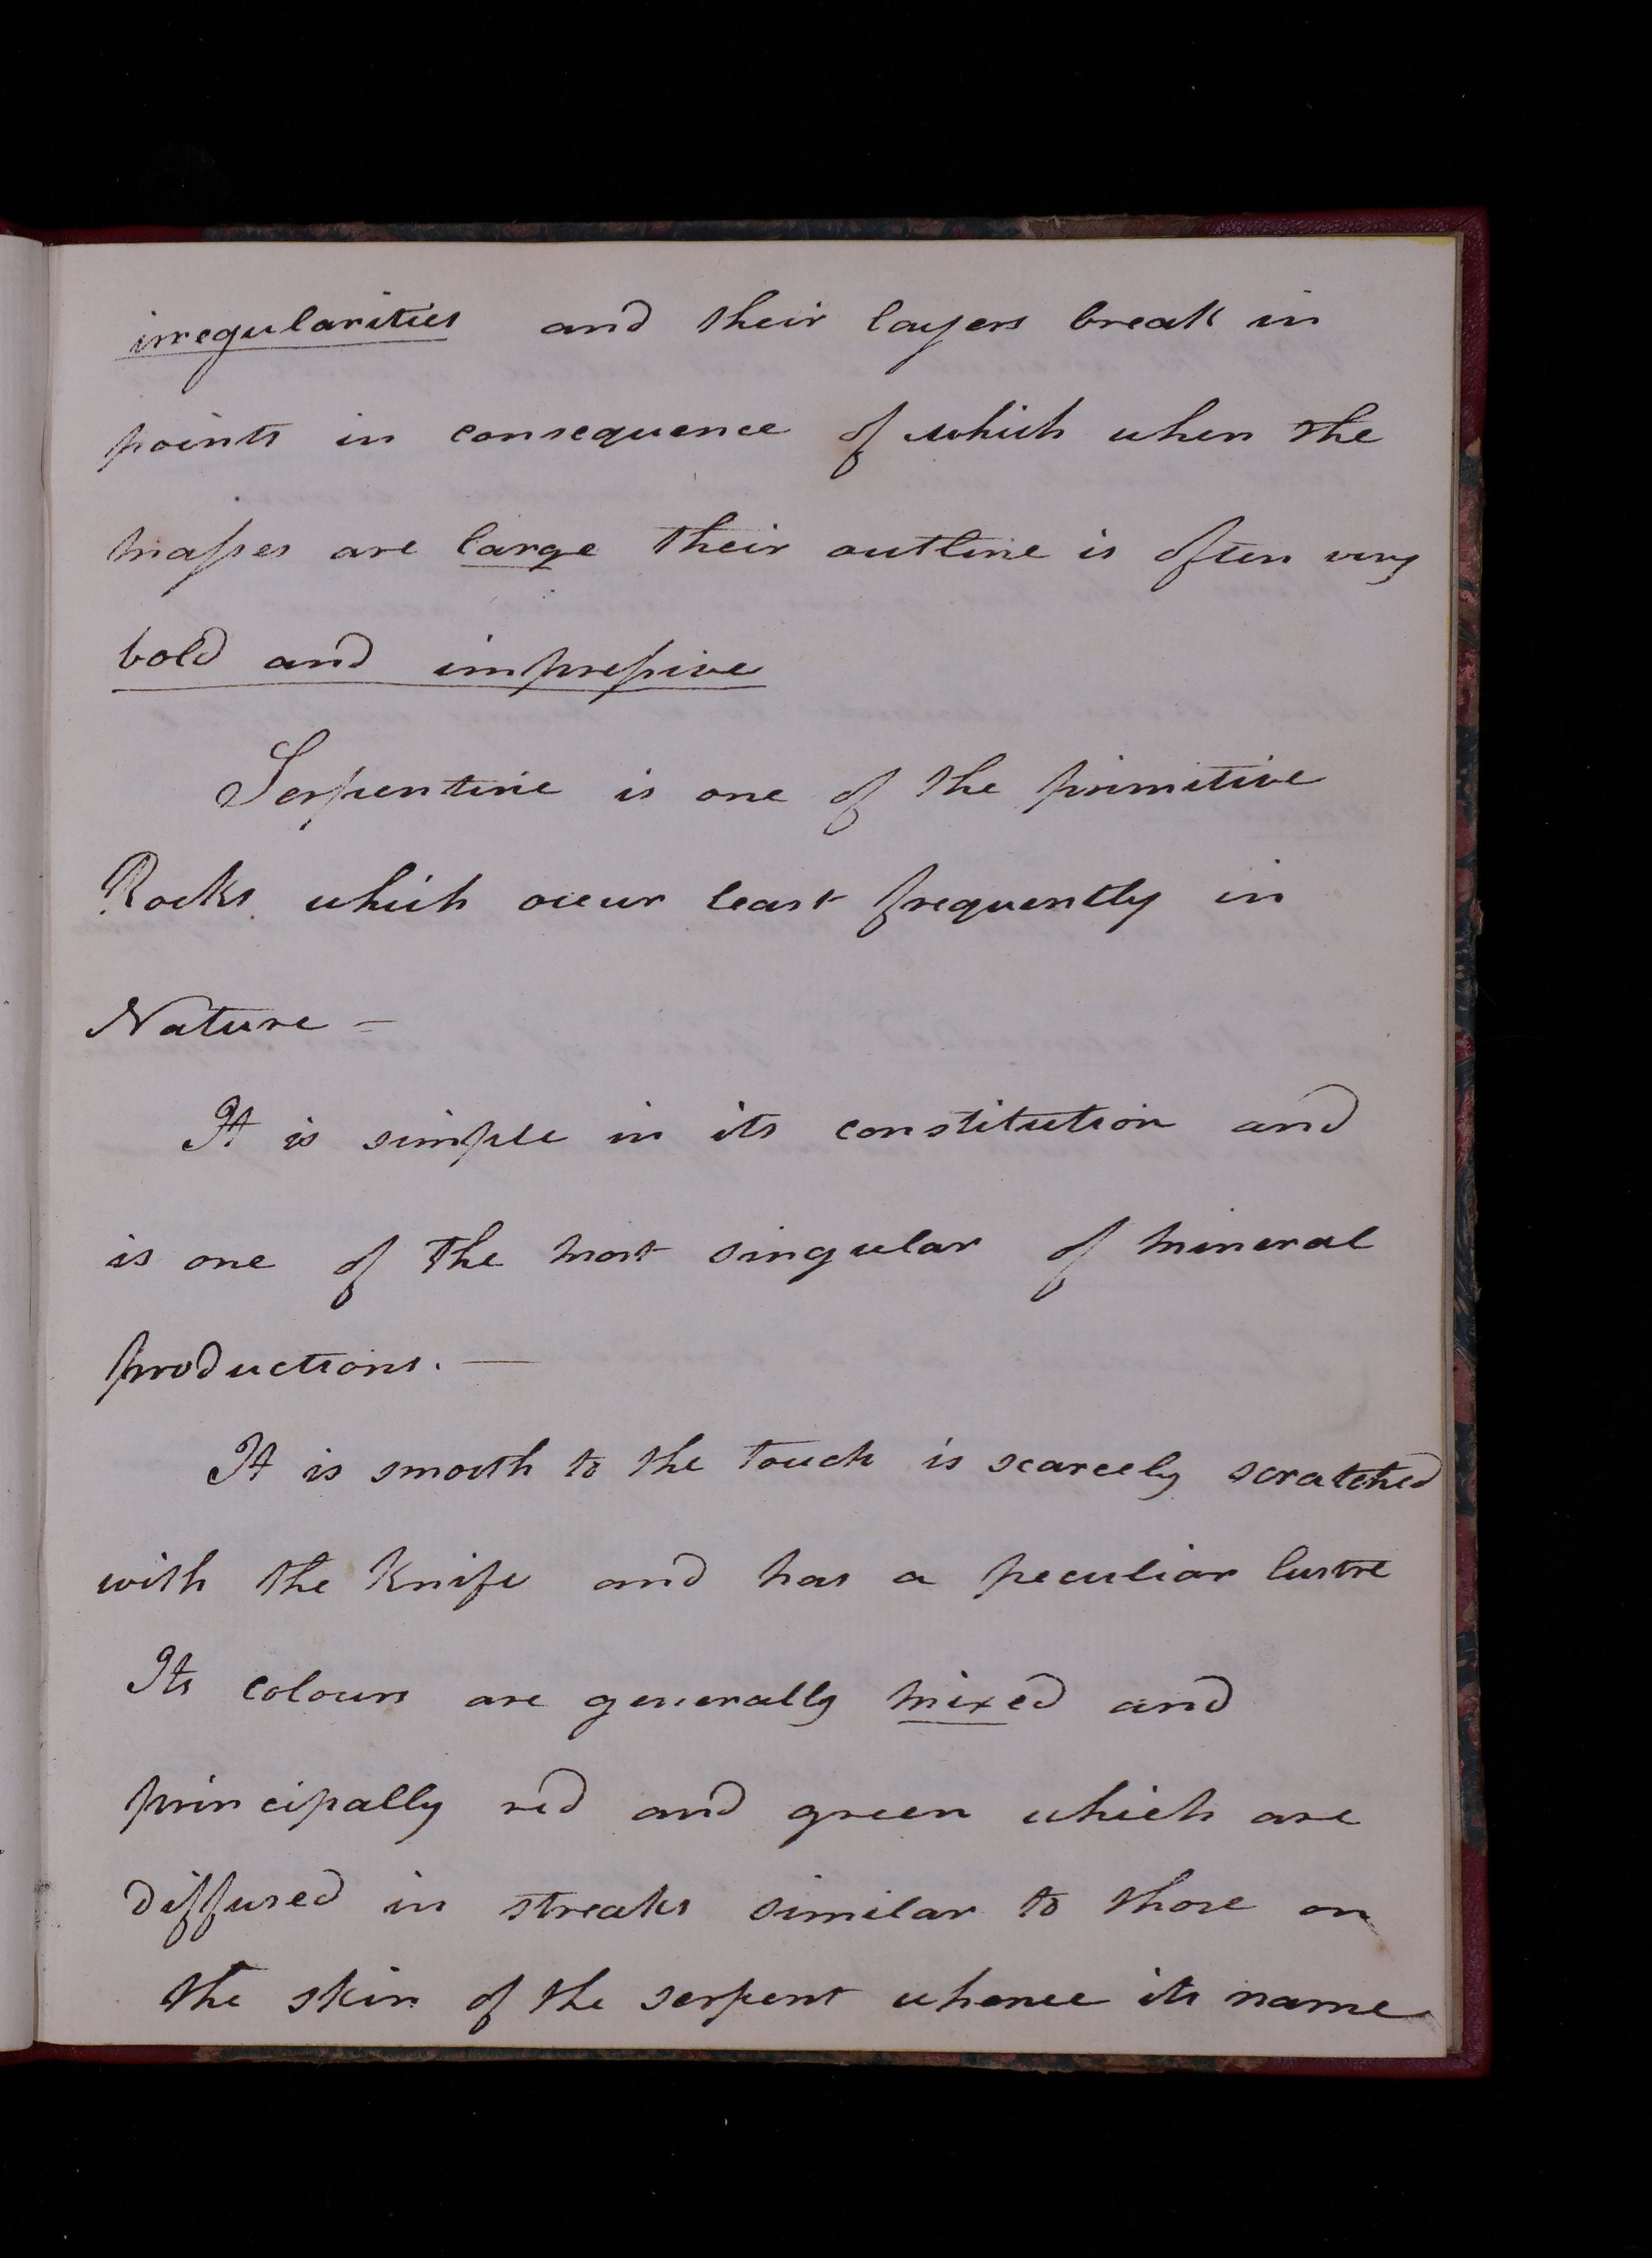 irregularities and their layers break in
points in consequence of which when the
masses are large their outline is often very
bold and impressive
Serpentine is one of the primitive
Rocks which occur least frequently in
Nature –
It is simple in its constitution and
is one of the most singular of mineral
productions. —
It is smooth to the touch is scarcely scratched
with the knife and has a peculiar lustre
Its colours are generally mixed and
principally red and green which are
diffused in streaks similar to those on
the skin of the serpent whence its name